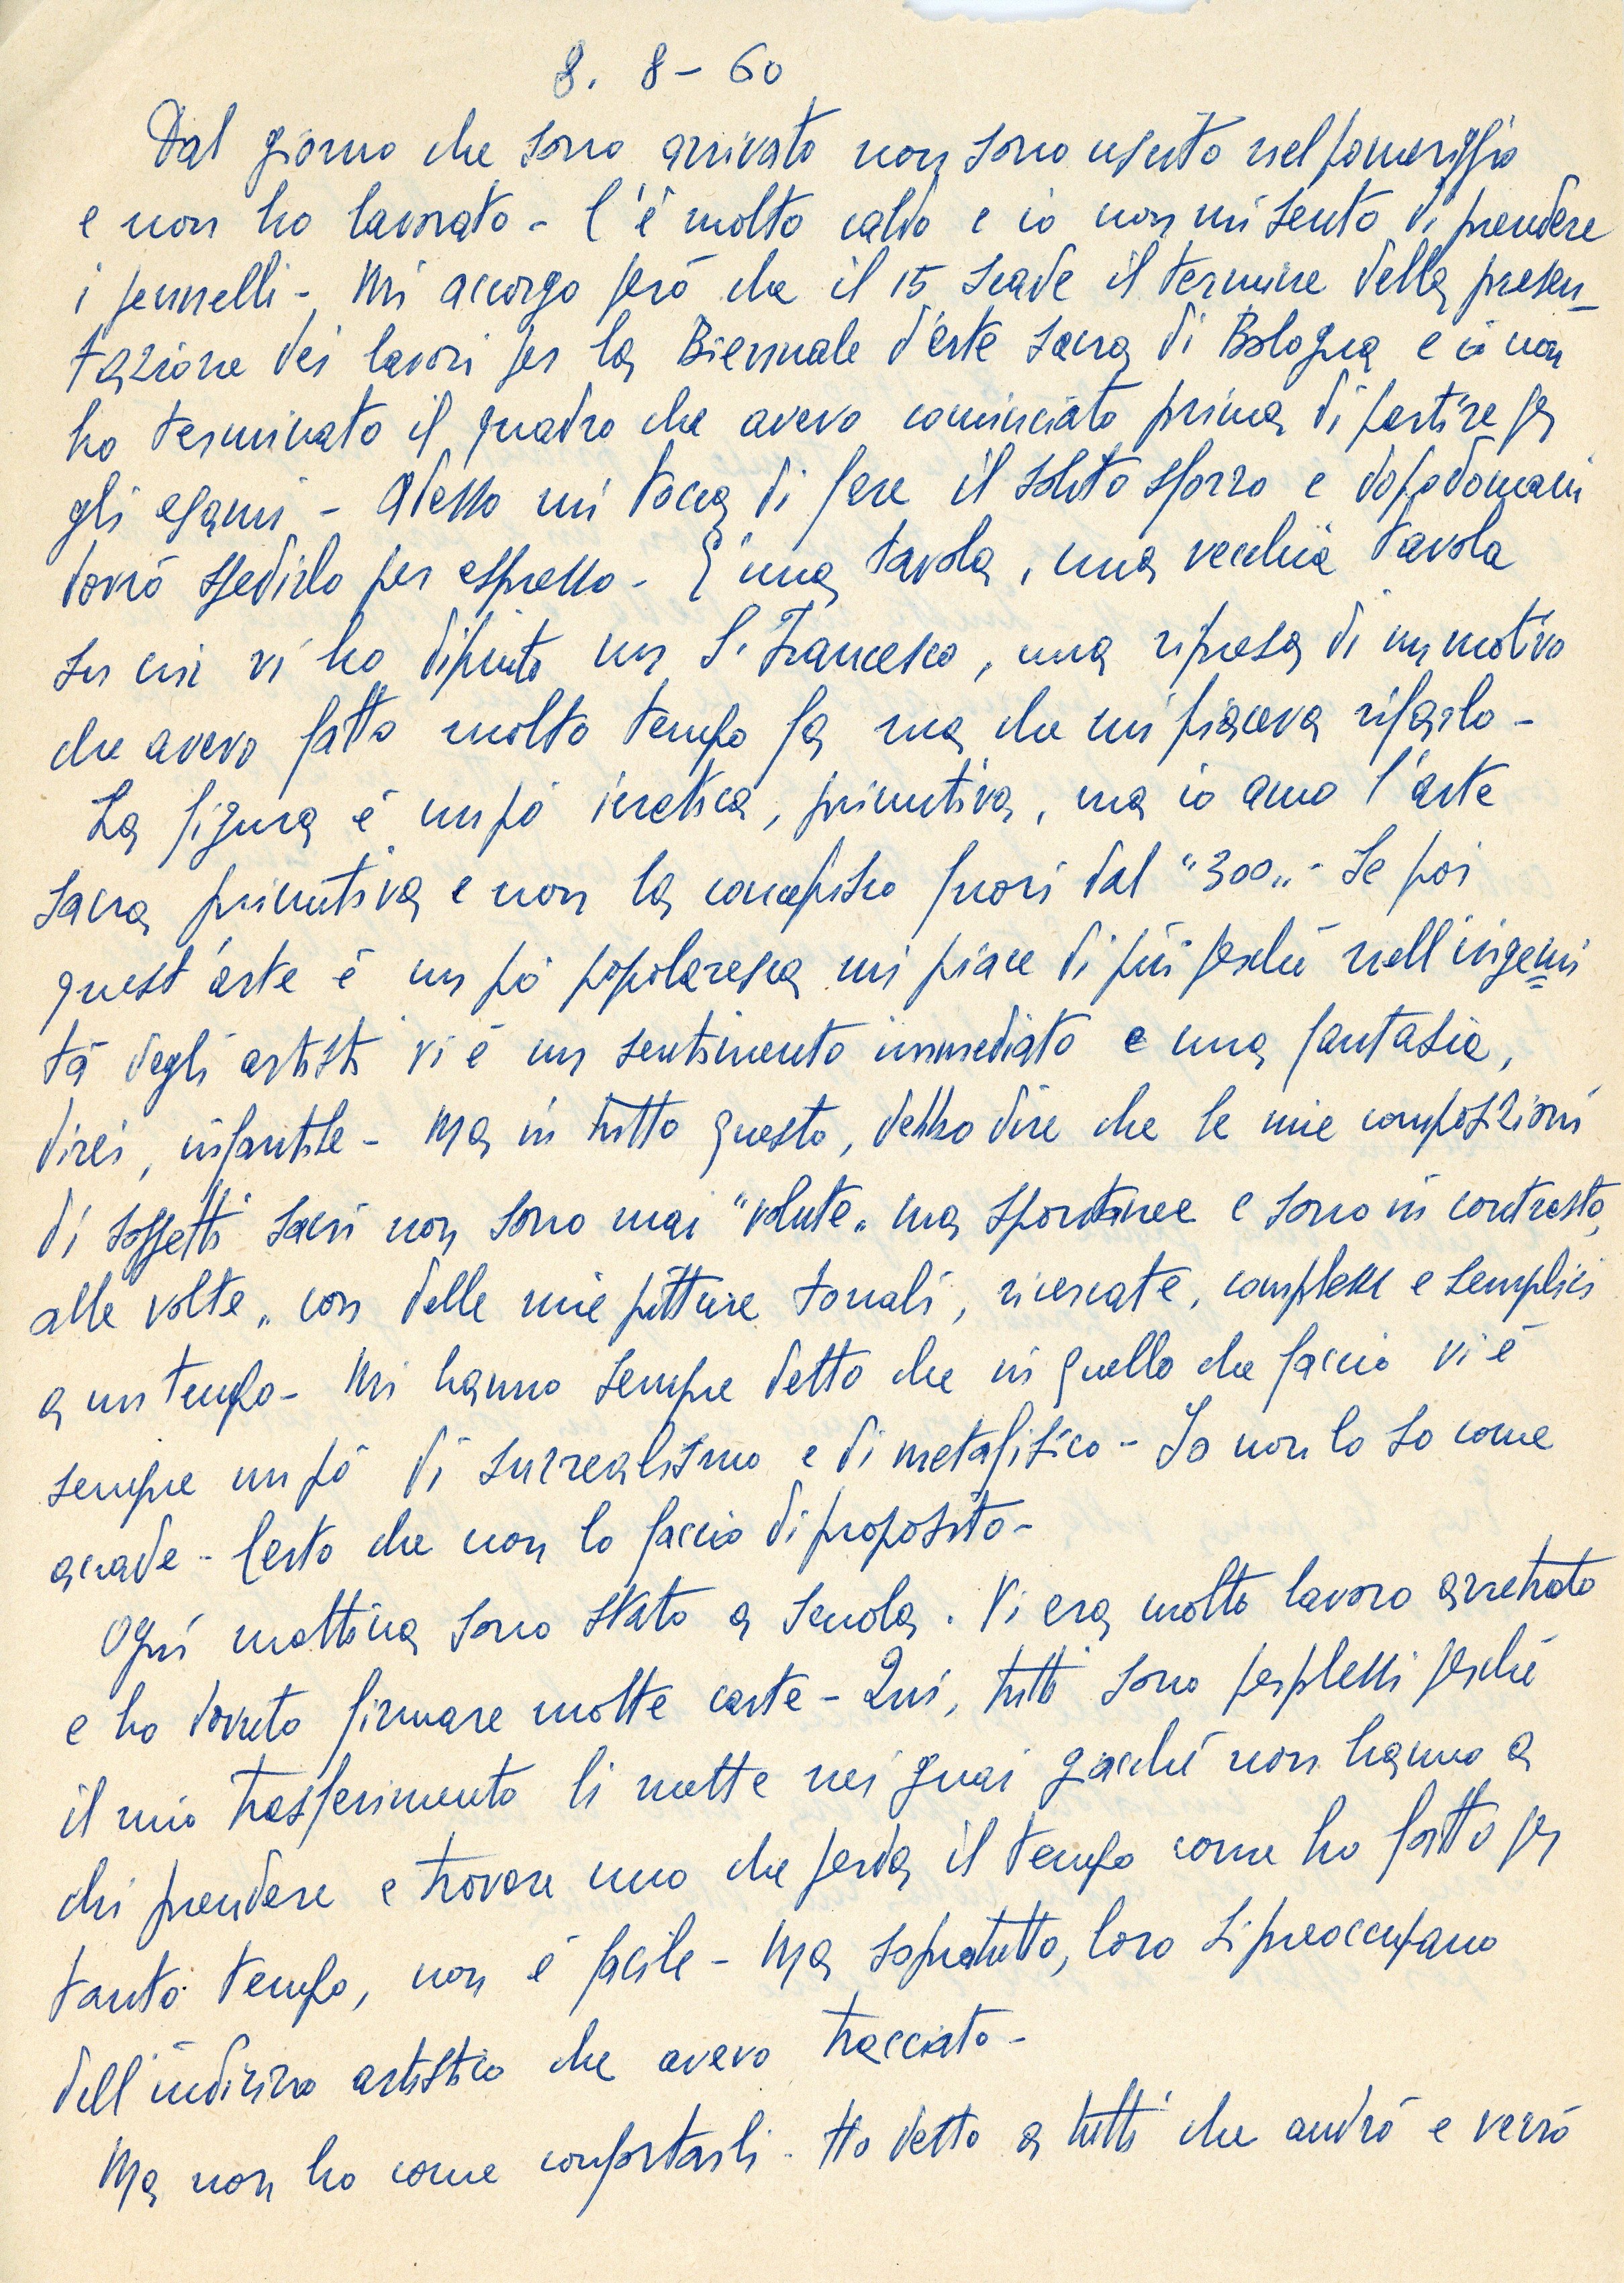 8. 8 - 60
Dal giorno che sono arrivato non sono uscito nel pomeriggio
e non ho lavorato - C'è molto caldo e io non mi sento di prendere
i pennelli - Mi accorgo però che il 15 scade il termine della presen-
tazione dei lavori per la Biennale d'arte sacra di Bologna e io non
ho terminato il quadro che avevo cominciato prima di partire per
gli esami - Adesso mi tocca di fare il solito sforzo e dopodomani
dovrò spedirlo per espresso - È una tavola, una vecchia tavola
su cui vi ho dipinto un S. Francesco, una ripresa di un motivo
che avevo fatto molto tempo fa ma che mi piaceva rifarlo -
La figura è un pò ieratica, primitiva, ma io amo l'arte
sacra primitiva e non la concepisco fuori dal "300„ - Se poi
quest'arte è un pò popolaresca mi piace di più perché nell'ingenui
tà degli artisti vi è un sentimento immediato e una fantasia,
direi, infantile - Ma in tutto questo, debbo dire che le mie composizioni
di soggetti sacri non sono mai "volute„ ma spontanee e sono in contrasto,
alle volte, con delle mie pitture tonali, ricercate, complesse e semplici
a un tempo - Mi hanno sempre detto che in quello che faccio vi è
sempre un pò di surrealismo e di metafisico - Io non lo so come
accade - Certo che non lo faccio di proposito -
Ogni mattina sono stato a scuola. Vi era molto lavoro arretrato
e ho dovuto firmare molte carte - Qui, tutti sono perplessi perché
il mio trasferimento li mette nei guai giacché non hanno a
chi prendere e trovare uno che perda il tempo come ho fatto per
tanto tempo, non è facile - Ma sopratutto, loro si preoccupano
dell'indirizzo artistico che avevo tracciato -
Ma non ho come confortarli - Ho detto a tutti che andrò e verrò